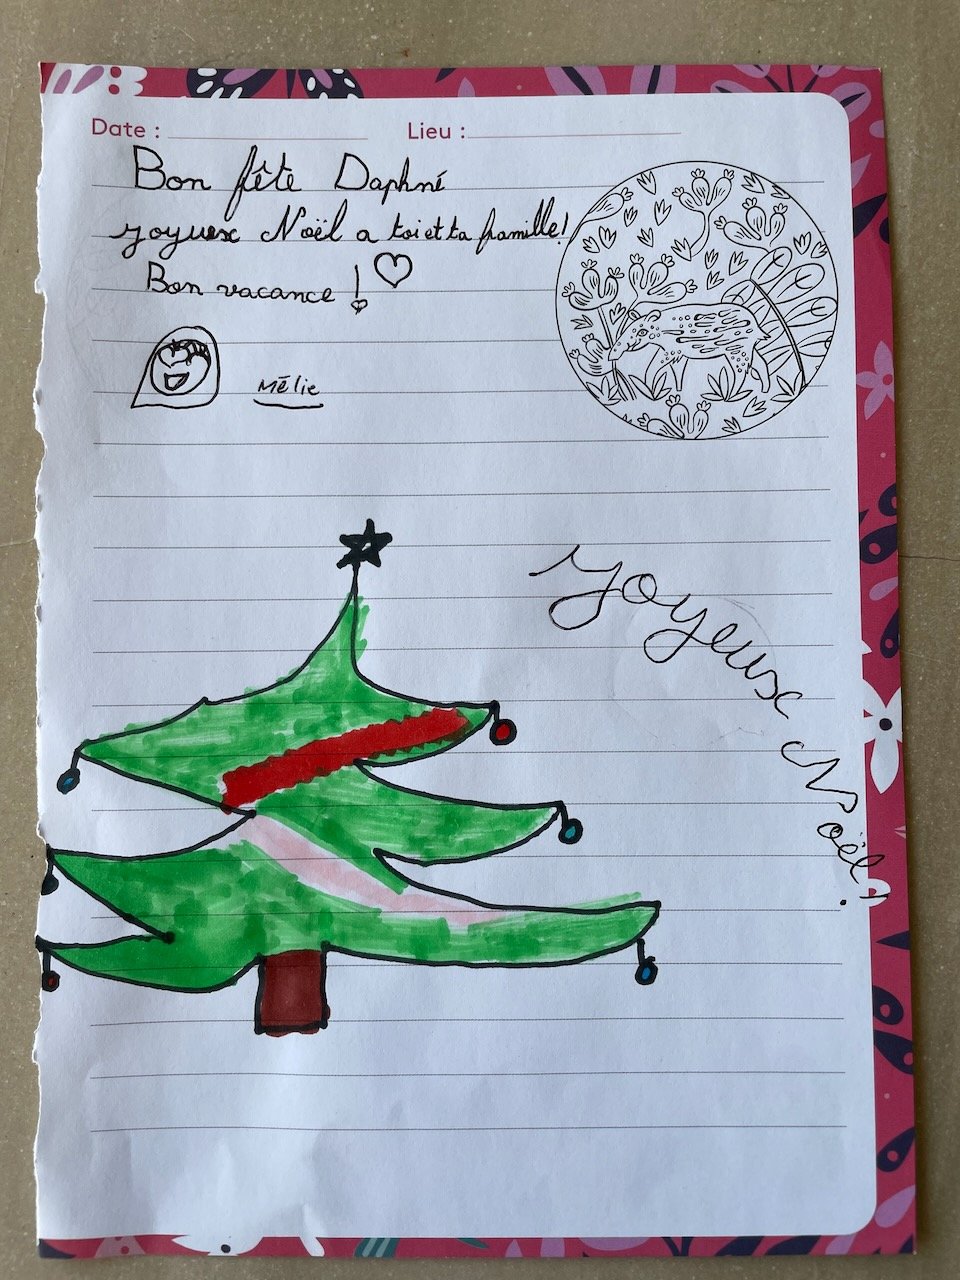 Date :
Lieu :
Bon fête Daphné
joyuex Noël a toi et ta famille!
Bon vacance !
Mélie
joyeusx Noël!